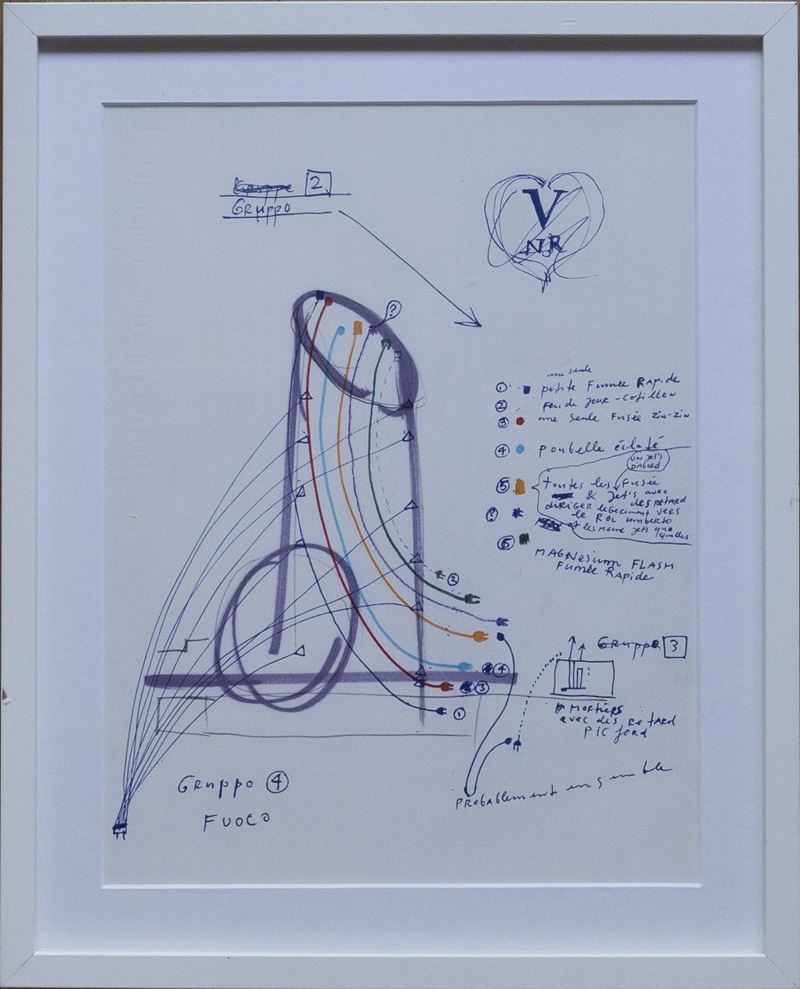 2
Gruppo
V
NR
?
une seule
① petite Fumée Rapide
② feu de jour-cotillon
③ une seule Fusée zin-zin
④ poubelle éclaté
un jet's
D'ABORD
⑤ toutes les Fusée
& Jet's avec des retard
diriger legerement vers
le Roi umberto
? et les meme jets que
⑥ MAGNesium FLASH
Fumée Rapide
②
④
③
①
Gruppo 3
mortiers
avec des retard
PIC ford
PRobablement ensemble
Gruppo ④
Fuoco